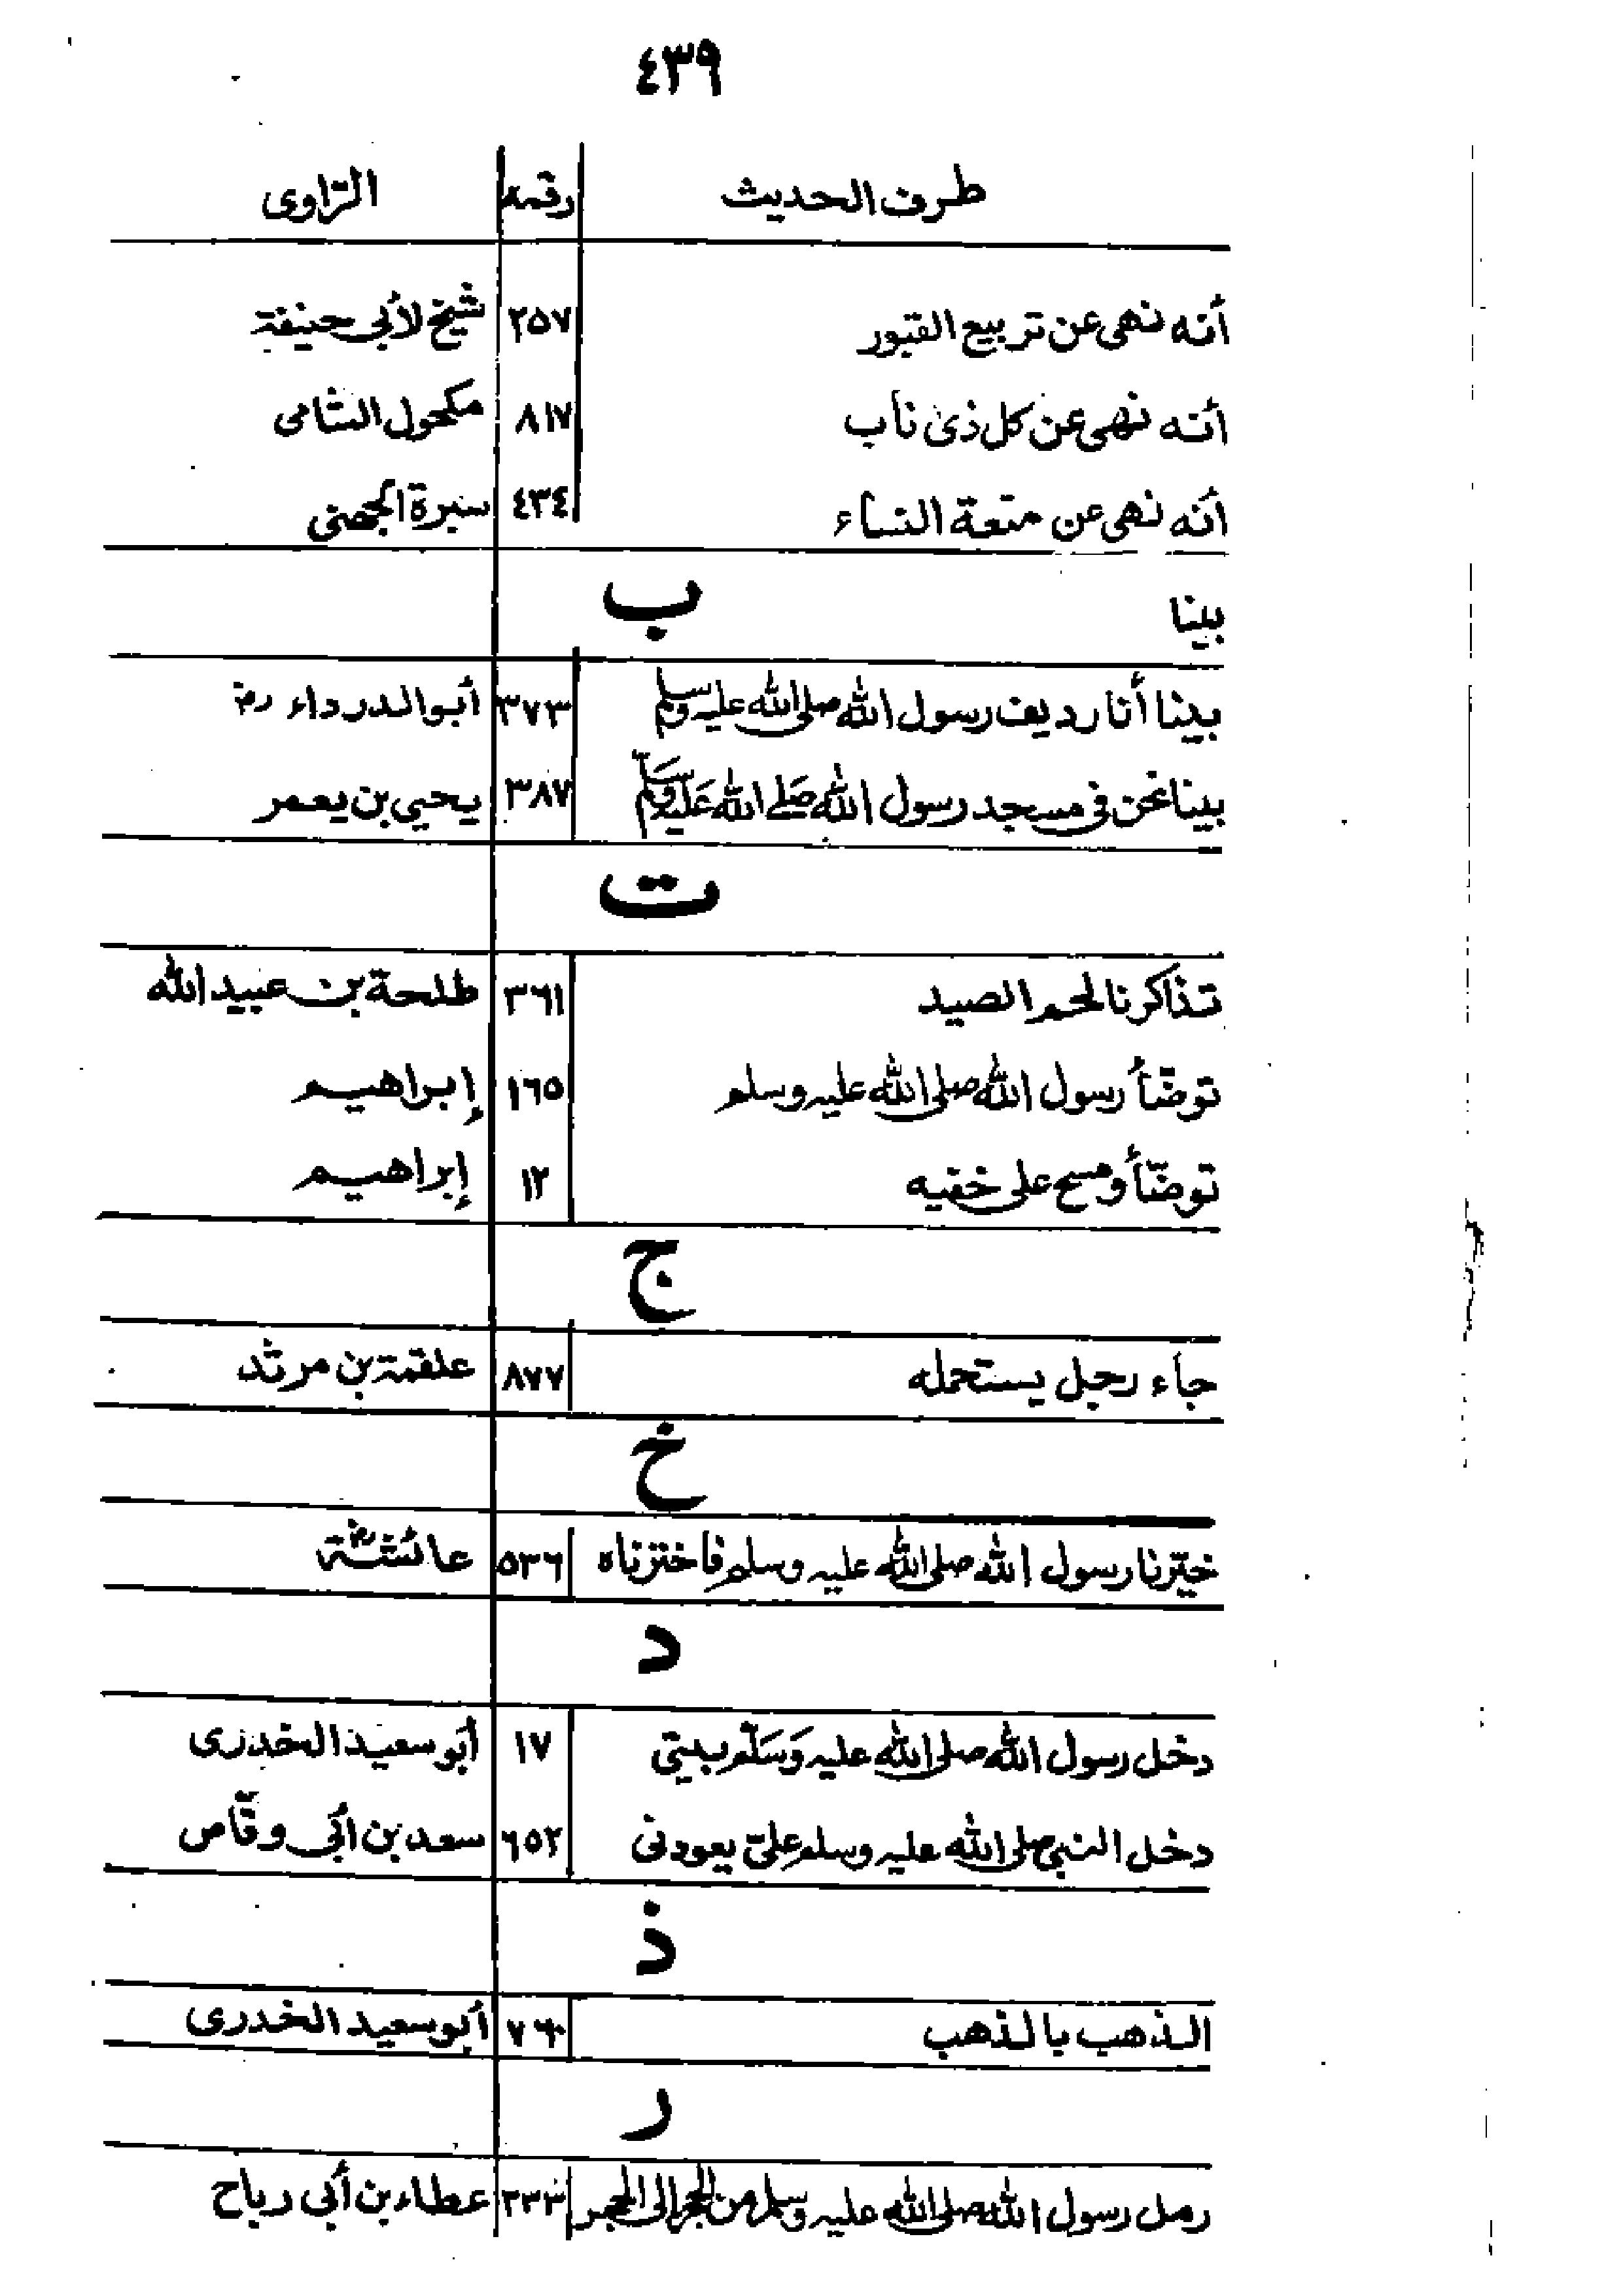 ٤٣٩
طرف الحديث رقمه الرّاوى
أنه نهى عن تربيع القبور ٢٥٧ شيخ لأبي حنيفة
أنه نهى عن كل ذى ناب ٨١٧ مكحول الشامى
أنه نهى عن متعة النساء ٤٣٤ سبرة الجهنى
بينا ب
بينا أنا رديف رسول الله صلى الله عليه وسلم ٣٧٣ أبو الدرداء رض
بينا نحن فى مسجد رسول الله صلى الله عليه وسلم ٣٨٧ يحيي بن يعمر
ت
تذاكرنا لحم الصيد ٣٦١ طلحة بن عبيد الله
توضّأ رسول الله صلى الله عليه وسلم ١٦٥ إبراهيم
توضّأ ومسح على خفيه ١٢ إبراهيم
ج
جاء رجل يستحمله ٨٧٧ علقمة بن مرثد
خ
خيّرنا رسول الله صلى الله عليه وسلم فاخترناه ٥٣٦ عائشة رض
د
دخل رسول الله صلى الله عليه وَسَلّم بيتي ١٧ أبو سعيد الخدرى
دخل النبي صلى الله عليه وسلم عليّ يعودنى ٦٥٢ سعد بن أبي وقّاص
ذ
الذهب بالذهب ٧٦٠ أبو سعيد الخدرى
ر
رمل رسول الله صلى الله عليه وسلم من الحجر الى الحجر ٣٣٣ عطاء بن أبى رباح